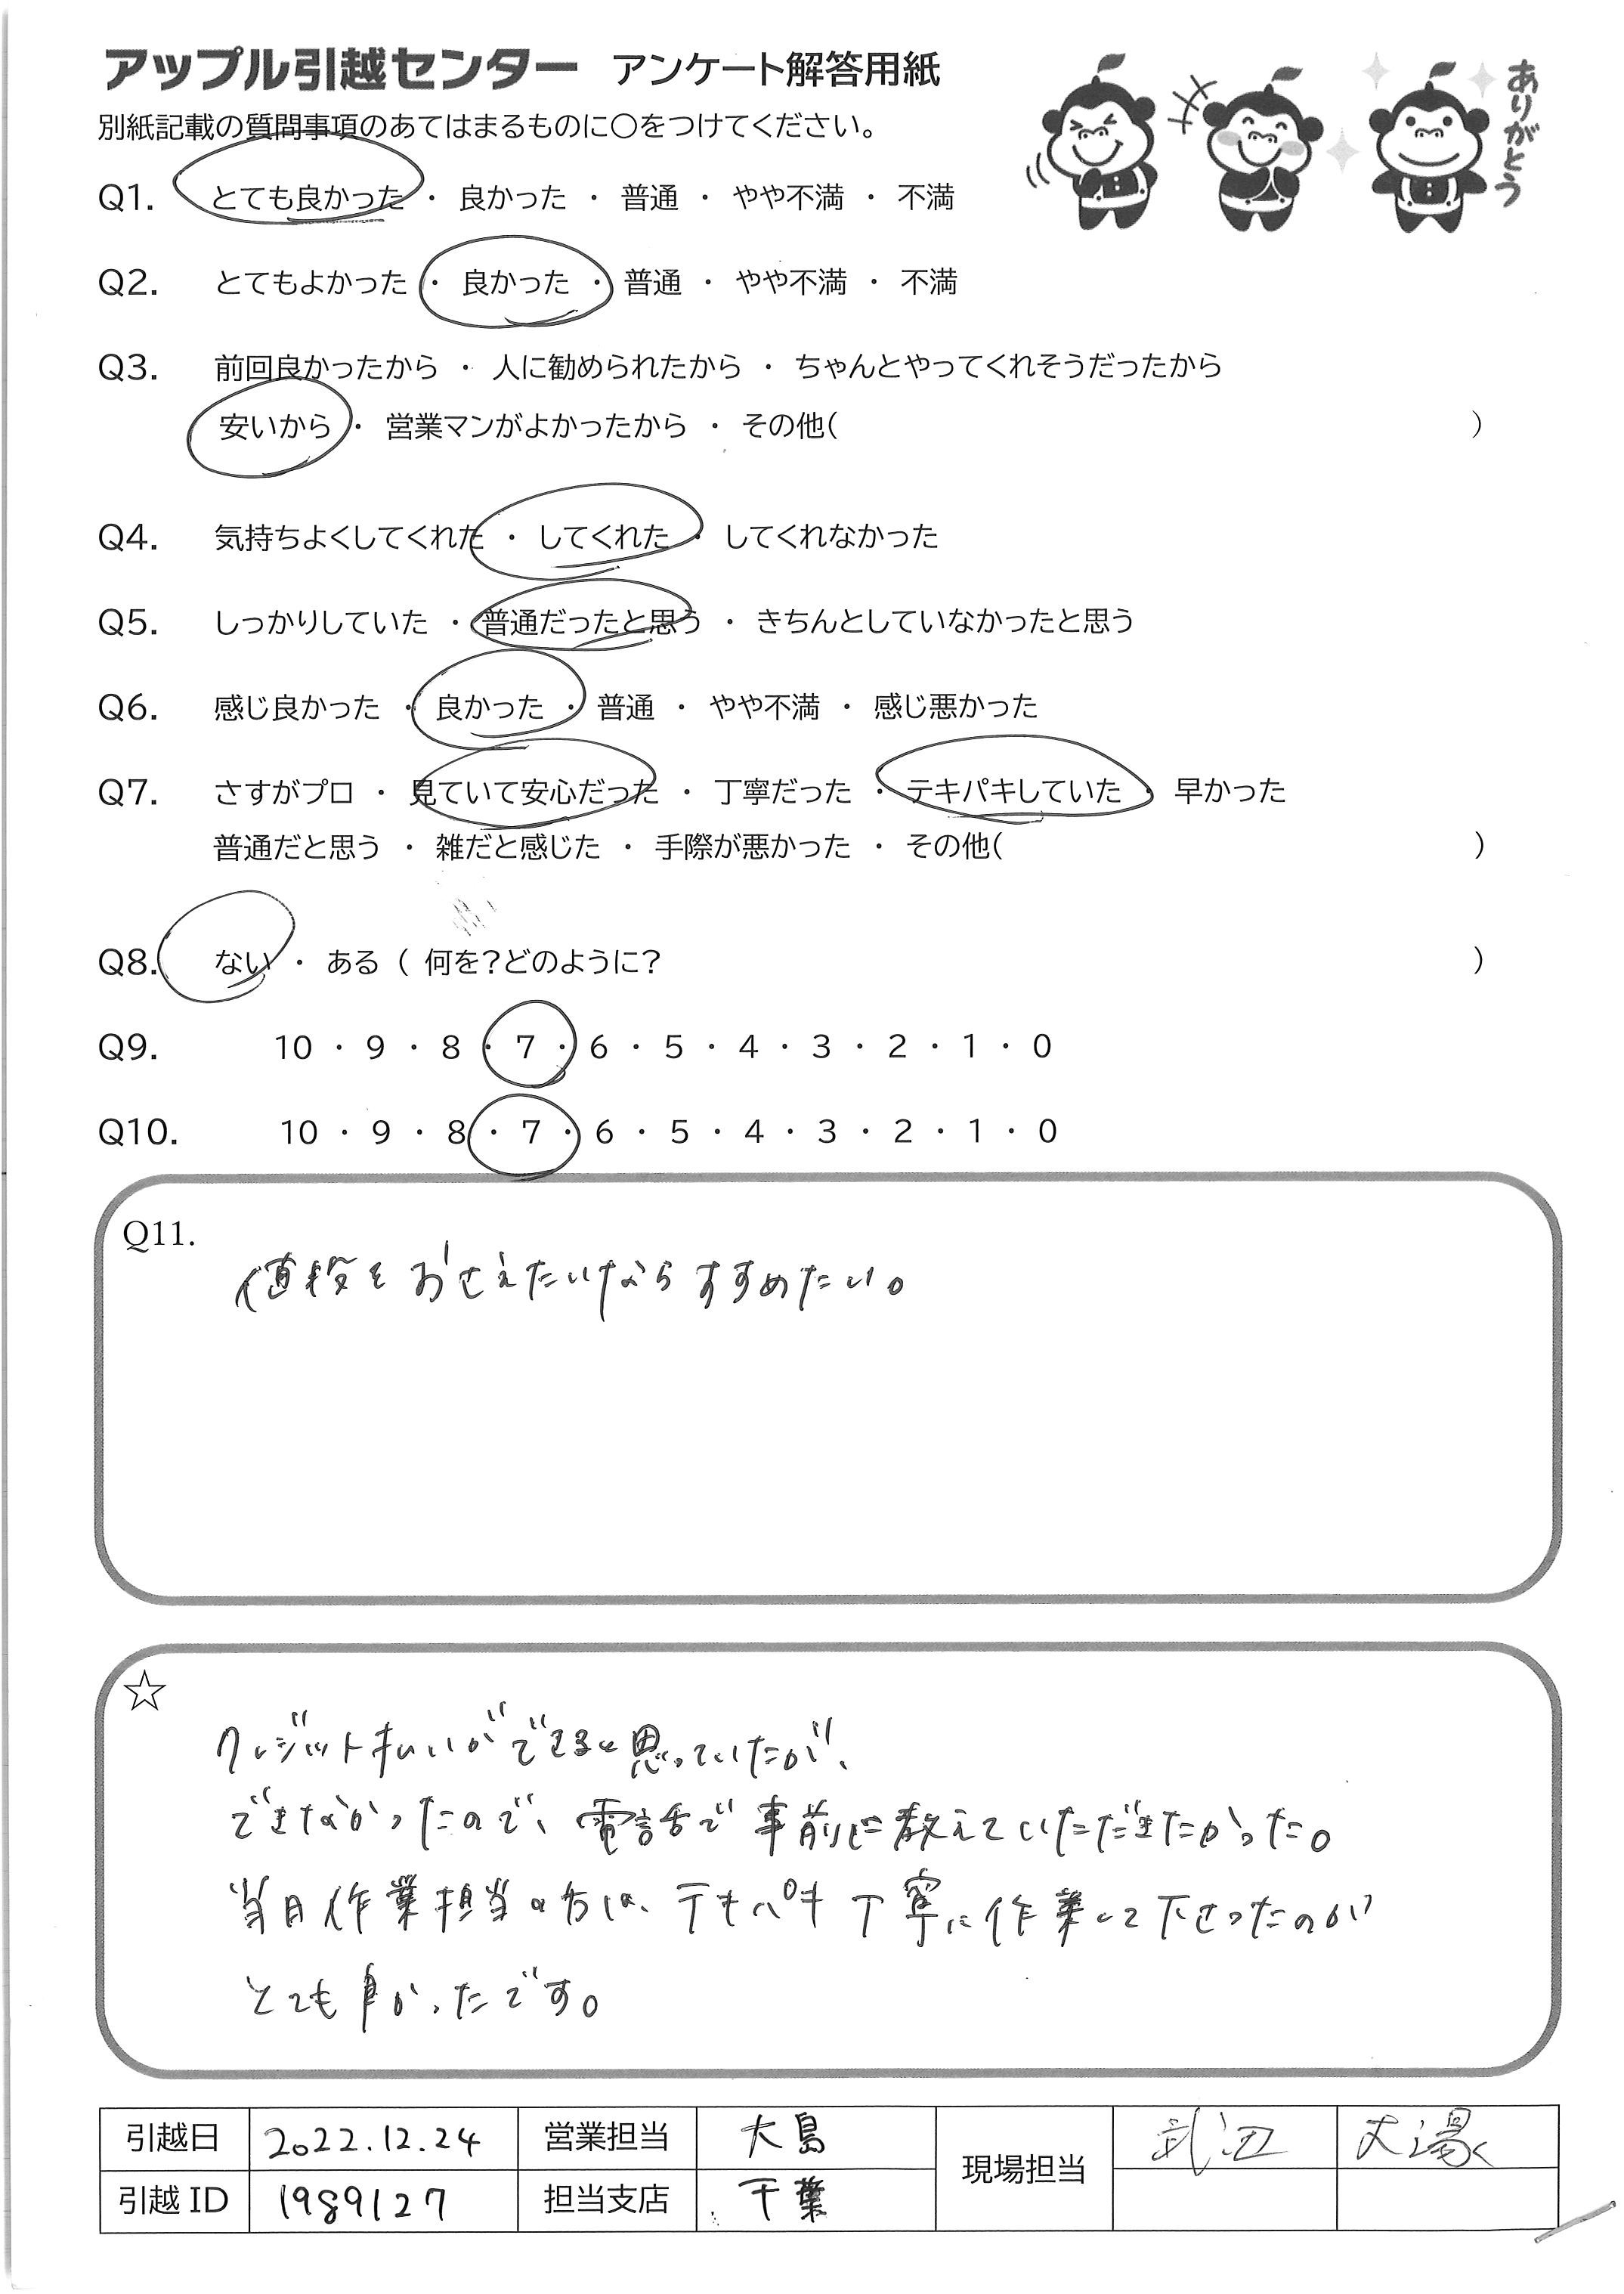 アップル引越センター アンケート解答用紙
ありがとう
別紙記載の質問事項のあてはまるものに○をつけてください。
Q1. とても良かった ・ 良かった ・ 普通 ・ やや不満 ・ 不満
Q2. とてもよかった ・ 良かった ・ 普通 ・ やや不満 ・ 不満
Q3. 前回良かったから ・ 人に勧められたから ・ ちゃんとやってくれそうだったから
安いから ・ 営業マンがよかったから ・ その他( )
Q4. 気持ちよくしてくれた ・ してくれた ・ してくれなかった
Q5. しっかりしていた ・ 普通だったと思う ・ きちんとしていなかったと思う
Q6. 感じ良かった ・ 良かった ・ 普通 ・ やや不満 ・ 感じ悪かった
Q7. さすがプロ ・ 見ていて安心だった ・ 丁寧だった ・ テキパキしていた ・ 早かった
普通だと思う ・ 雑だと感じた ・ 手際が悪かった ・ その他( )
Q8. ない ・ ある ( 何を?どのように? )
Q9. 10 ・ 9 ・ 8 ・ 7 ・ 6 ・ 5 ・ 4 ・ 3 ・ 2 ・ 1 ・ 0
Q10. 10 ・ 9 ・ 8 ・ 7 ・ 6 ・ 5 ・ 4 ・ 3 ・ 2 ・ 1 ・ 0
Q11.
値段をおさえたいならすすめたい。
☆
クレジット払いができると思っていたが、
できなかったので、電話で事前に教えていただきたかった。
当日作業担当の方は、テキパキ丁寧に作業して下さったのが
とても良かったです。
引越日 2022.12.24 営業担当 大島 現場担当
引越ID 1989127 担当支店 千葉